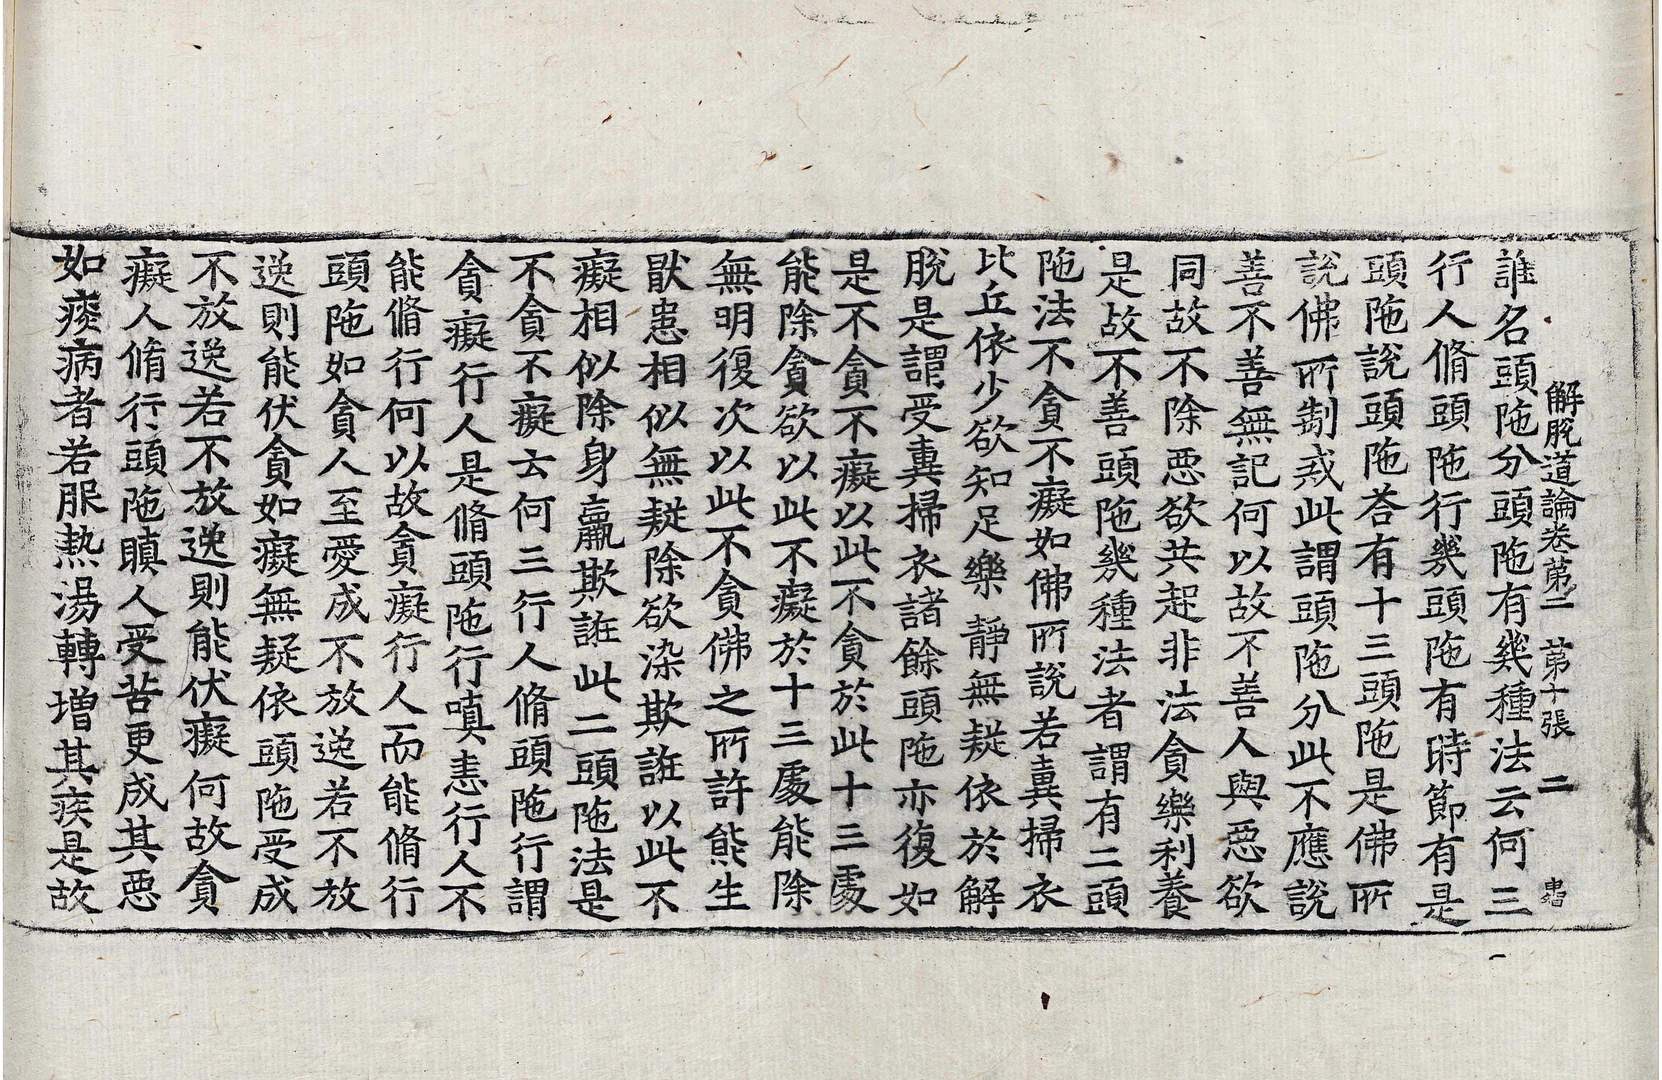 解脫道論卷第二 第十張 二
誰名頭陁分頭陁有幾種法云何三
行人脩頭陁行幾頭陁有時節有是
頭陁說頭陁荅有十三頭陁是佛所
說佛所制戒此謂頭陁分此不應說
善不善無記何以故不善人與惡欲
同故不除惡欲共起非法貪樂利養
是故不善頭陁幾種法者謂有二頭
陁法不貪不癡如佛所說若糞掃衣
比丘依少欲知足樂靜無疑依於解
脫是謂受糞掃衣諸餘頭陁亦復如
是不貪不癡以此不貪於此十三處
能除貪欲以此不癡於十三處能除
無明復次以此不貪佛之所許能生
猒患相似無疑除欲染欺誑以此不
癡相似除身羸欺誑此二頭陁法是
不貪不癡云何三行人脩頭陁行謂
貪癡行人是脩頭陁行嗔恚行人不
能脩行何以故貪癡行人而能脩行
頭陁如貪人至愛成不放逸若不放
逸則能伏貪如癡無疑依頭陁受成
不放逸若不放逸則能伏癡何故貪
癡人脩行頭陁瞋人受苦更成其惡
如痰病者若服熱湯轉增其疾是故